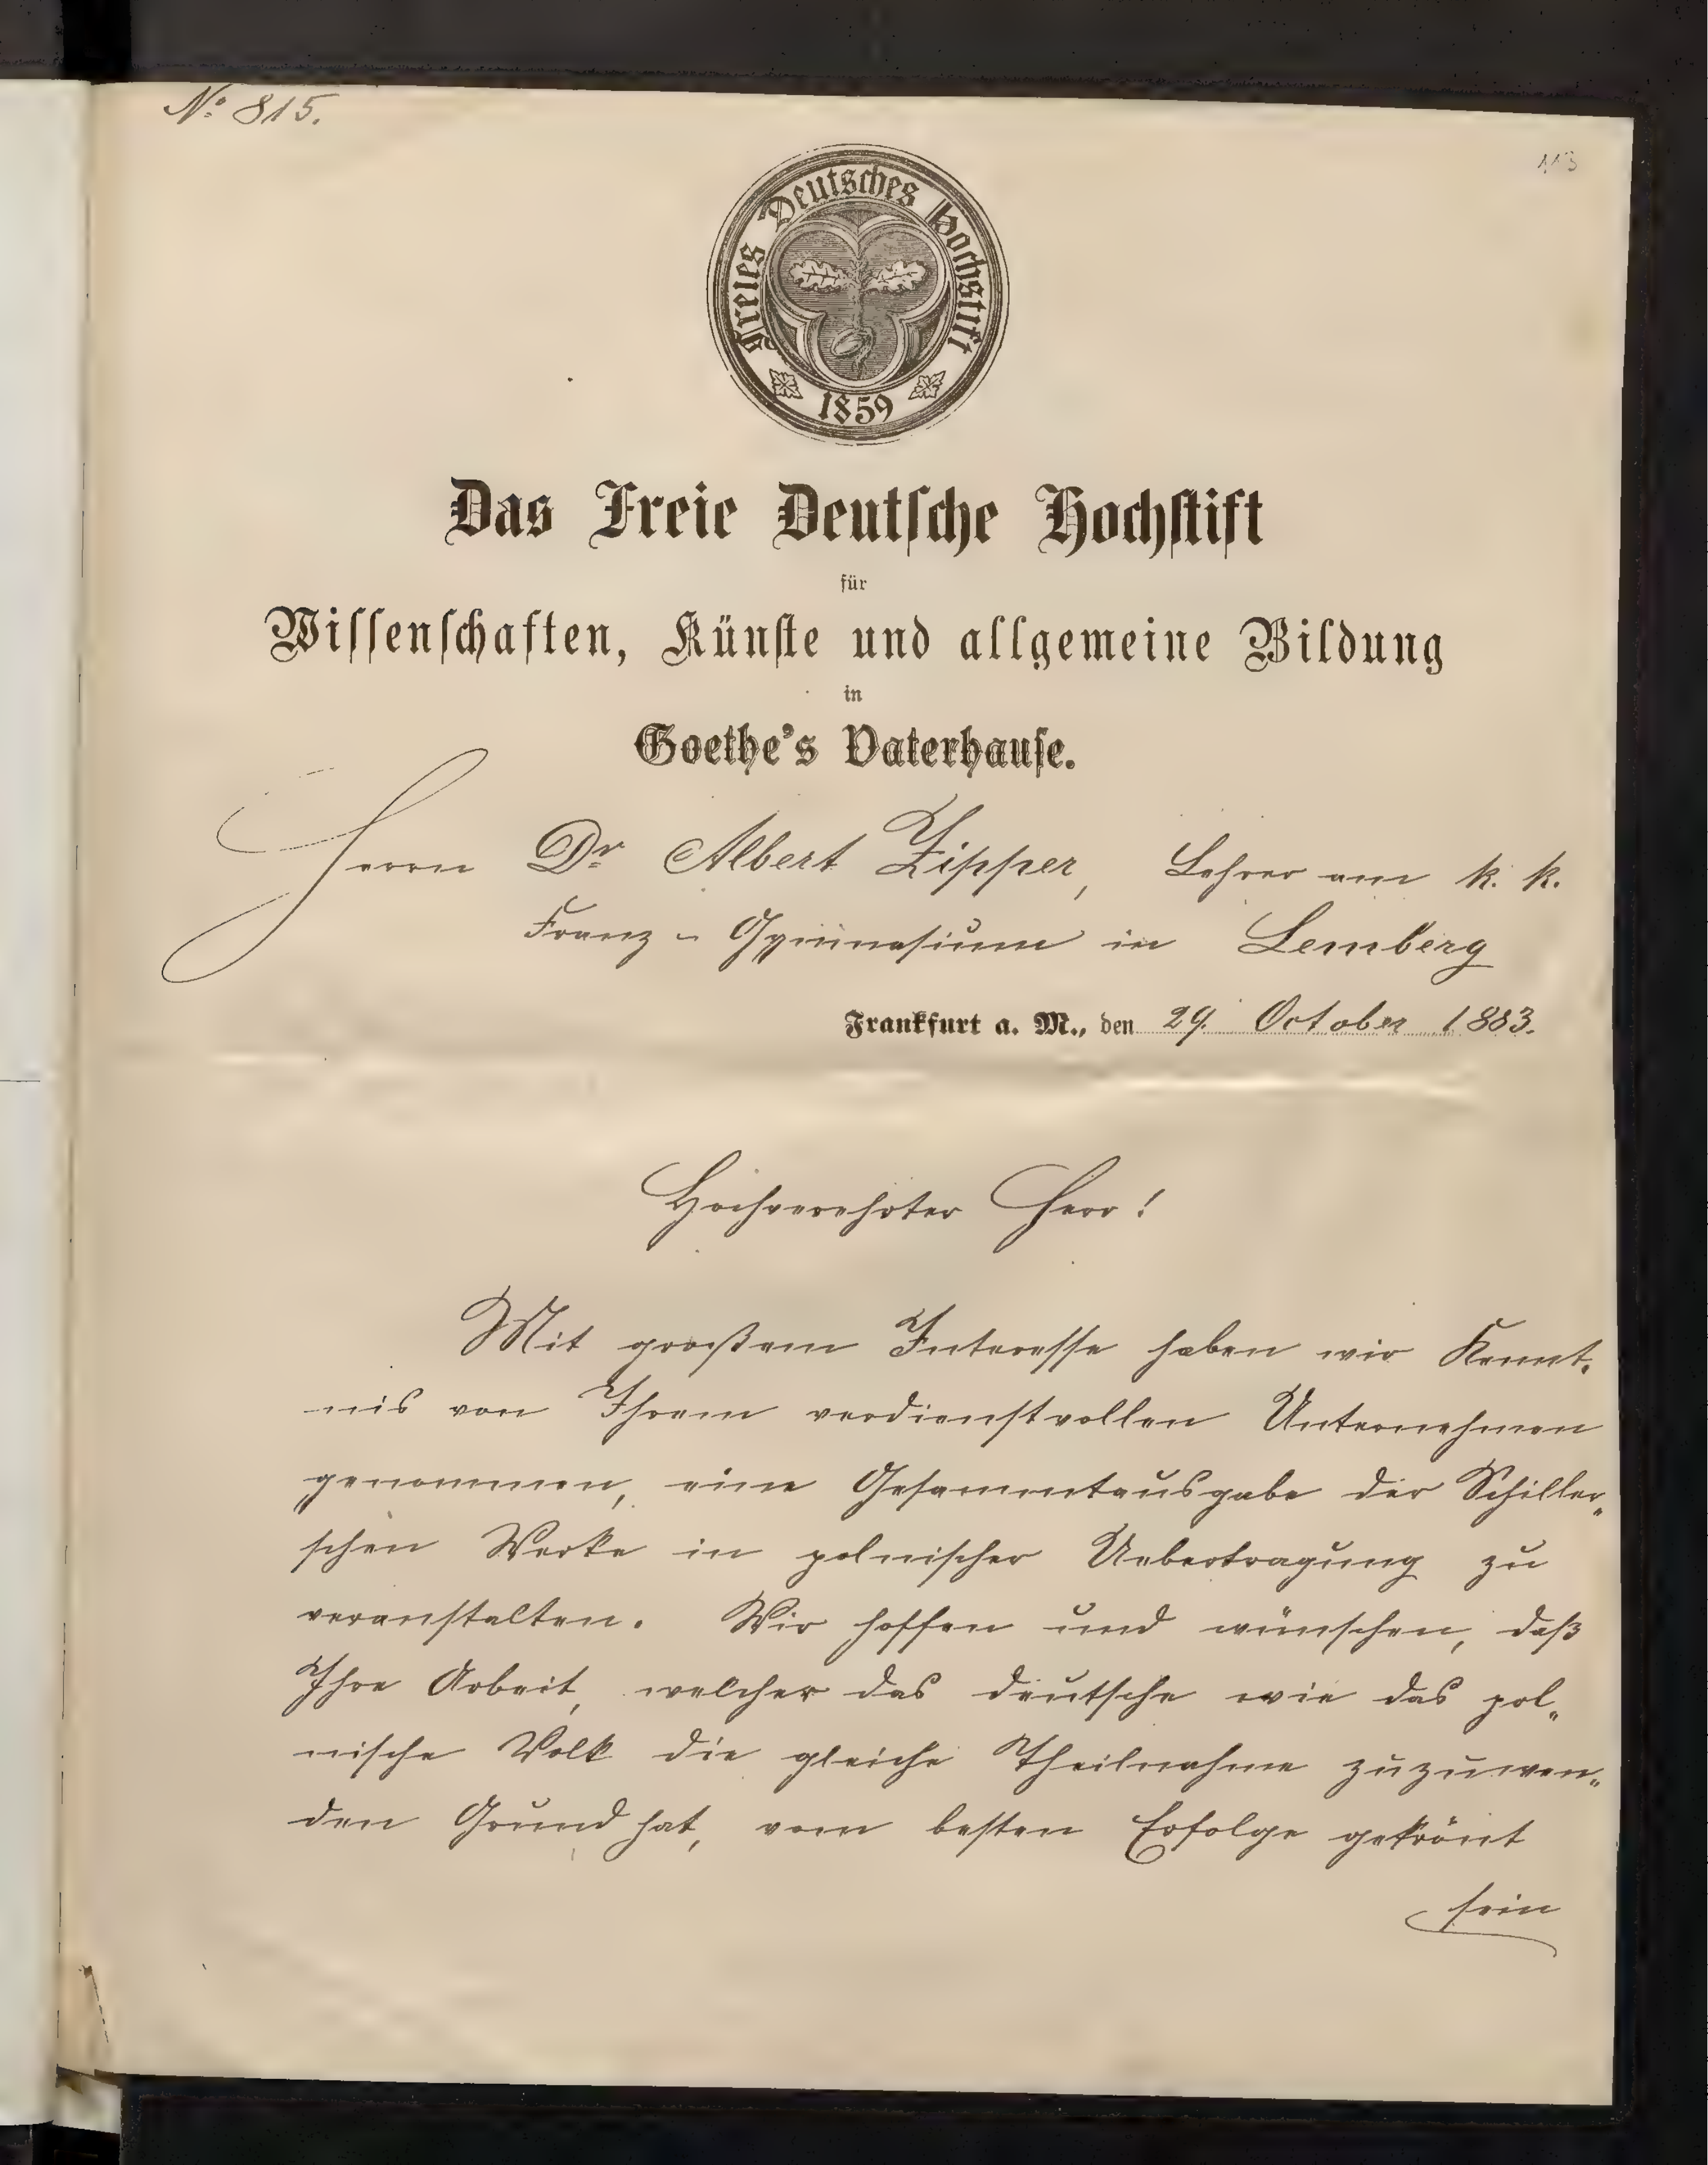 No. 815.
113
Freies Deutsches Hochstift
1859
Das Freie Deutsche Hochstift
für
Wissenschaften, Künste und allgemeine Bildung
in
Goethe's Vaterhause.
Herrn Dr Albert Zipper, Lehrer am k. k.
Franz-Gymnasium in Lemberg
Frankfurt a. M., den 29. October 1883.
Hochverehrter Herr!
Mit großem Interesse haben wir Kennt-
nis von Ihrem verdienstvollen Unternehmen
genommen, eine Gesammtausgabe der Schiller-
schen Werke in polnischer Uebertragung zu
veranstalten. Wir hoffen und wünschen, daß
Ihre Arbeit, welcher das deutsche wie das pol-
nische Volk die gleiche Theilnahme zuzuwen-
den Grund hat, vom besten Erfolge gekrönt
sein